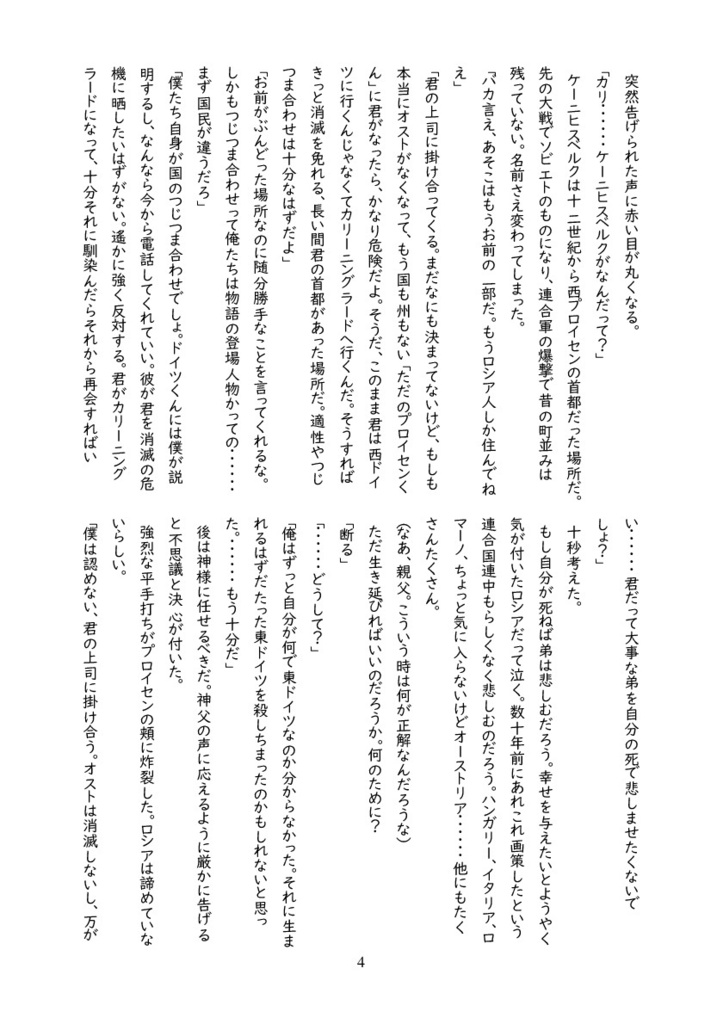 突然告げられた声に赤い目が丸くなる。
「カリ・・・・・ケーニヒスベルクがなんだって？」
ケーニヒスベルクは十二世紀から西プロイセンの首都だった場所だ。
先の大戦でソビエトのものになり、連合軍の爆撃で昔の町並みは
残っていない。名前さえ変わってしまった。
「バカ言え、あそこはもうお前の一部だ。もうロシア人しか住んでね
え」
「君の上司に掛け合ってくる。まだなにも決まってないけど、もしも
本当にオストがなくなって、もう国も州もない「ただのプロイセンく
ん」に君がなったら、かなり危険だよ。そうだ、このまま君は西ドイ
ツに行くんじゃなくてカリーニングラードへ行くんだ。そうすれば
きっと消滅を免れる、長い間君の首都があった場所だ。適性やつじ
つま合わせは十分なはずだよ」
「お前がぶんどった場所なのに随分勝手なことを言ってくれるな。
しかもつじつま合わせって俺たちは物語の登場人物かっての・・・・・・
まず国民が違うだろ」
「僕たち自身が国のつじつま合わせでしょ。ドイツくんには僕が説
明するし、なんなら今から電話してくれていい。彼が君を消滅の危
機に晒したいはずがない。遙かに強く反対する。君がカリーニング
ラードになって、十分それに馴染んだらそれから再会すればい
い・・・・・君だって大事な弟を自分の死で悲しませたくないで
しょ？」
十秒考えた。
もし自分が死ねば弟は悲しむだろう。幸せを与えたいとようやく
気が付いたロシアだって泣く。数十年前にあれこれ画策したという
連合国連中もらしくなく悲しむのだろう。ハンガリー、イタリア、ロ
マーノ、ちょっと気に入らないけどオーストリア・・・・・・他にもたく
さんたくさん。
（なあ、親父。こういう時は何が正解なんだろうな）
ただ生き延びればいいのだろうか。何のために？
「断る」
「・・・・・どうして？」
「俺はずっと自分が何で東ドイツなのか分からなかった。それに生ま
れるはずだたった東ドイツを殺しちまったのかもしれないと思っ
た。・・・・・・もう十分だ」
後は神様に任せるべきだ。神父の声に応えるように厳かに告げる
と不思議と決心が付いた。
強烈な平手打ちがプロイセンの頬に炸裂した。ロシアは諦めていな
いらしい。
「僕は認めない、君の上司に掛け合う。オストは消滅しないし、万が
4